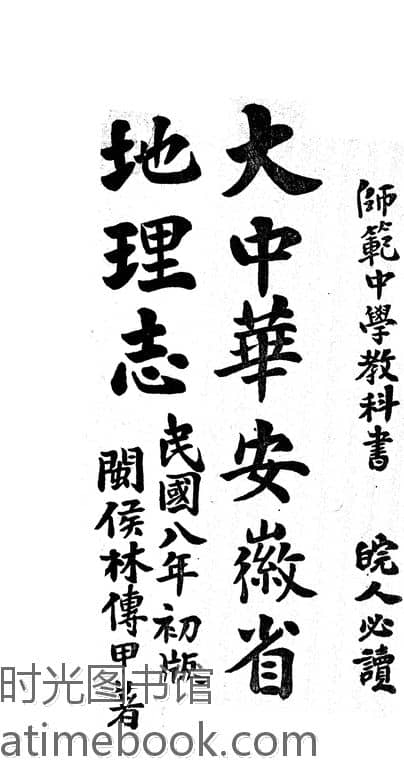 師範中學教科書 皖人必讀
大中華安徽省
地理志
民國八年初版
閩侯林傳甲著
时光图书馆
atimebook.com